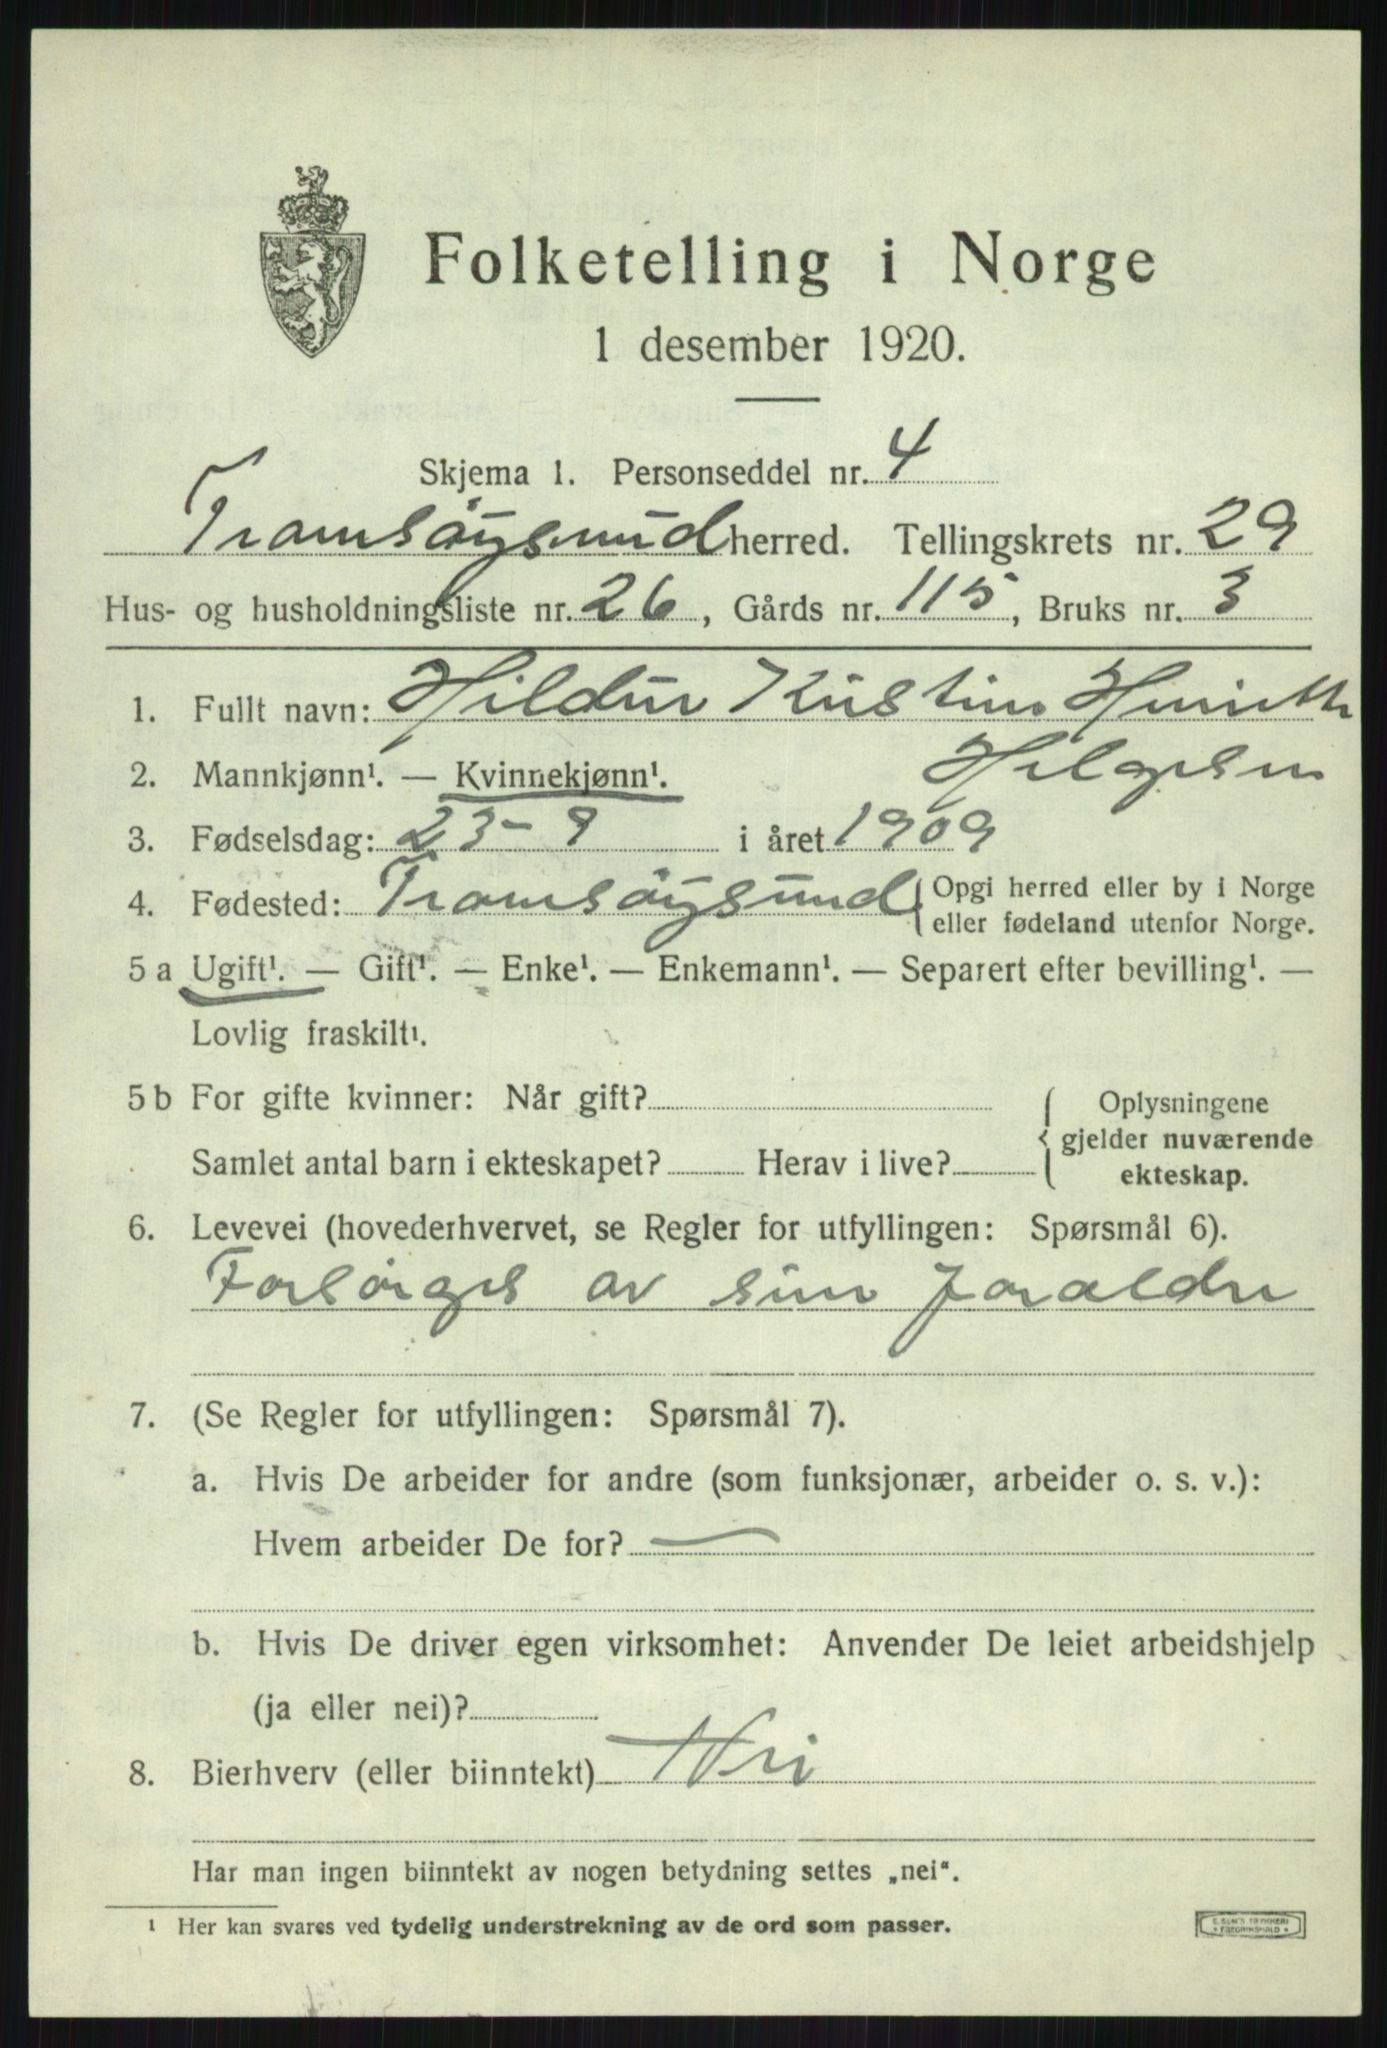 Folketelling i Norge
1 desember 1920.
Skjema 1. Personseddel nr. 4
Tromsöysund herred. Tellingskrets nr. 29
Hus- og husholdningsliste nr. 26, Gårds nr. 115, Bruks nr. 3
1. Fullt navn: Hildur Kristine Henriette
Helgesen
2. Mannkjønn¹. — Kvinnekjønn¹.
3. Fødselsdag: 23-9 i året 1909
4. Fødested: Tromsöysund { Opgi herred eller by i Norge
eller fødeland utenfor Norge.
5 a Ugift¹. — Gift¹. — Enke¹. — Enkemann¹. — Separert efter bevilling¹. —
Lovlig fraskilt¹.
5 b For gifte kvinner: Når gift?
Samlet antal barn i ekteskapet? Herav i live?
{ Oplysningene
gjelder nuværende
ekteskap.
6. Levevei (hovederhvervet, se Regler for utfyllingen: Spørsmål 6).
Forsörges av sine foraldre
7. (Se Regler for utfyllingen: Spørsmål 7).
a. Hvis De arbeider for andre (som funksjonær, arbeider o. s. v.):
Hvem arbeider De for? —
b. Hvis De driver egen virksomhet: Anvender De leiet arbeidshjelp
(ja eller nei)?
8. Bierhverv (eller biinntekt) Nei
Har man ingen biinntekt av nogen betydning settes „nei“.
¹ Her kan svares ved tydelig understrekning av de ord som passer.
E. SEM'S TRYKKERI
FREDRIKSHALD